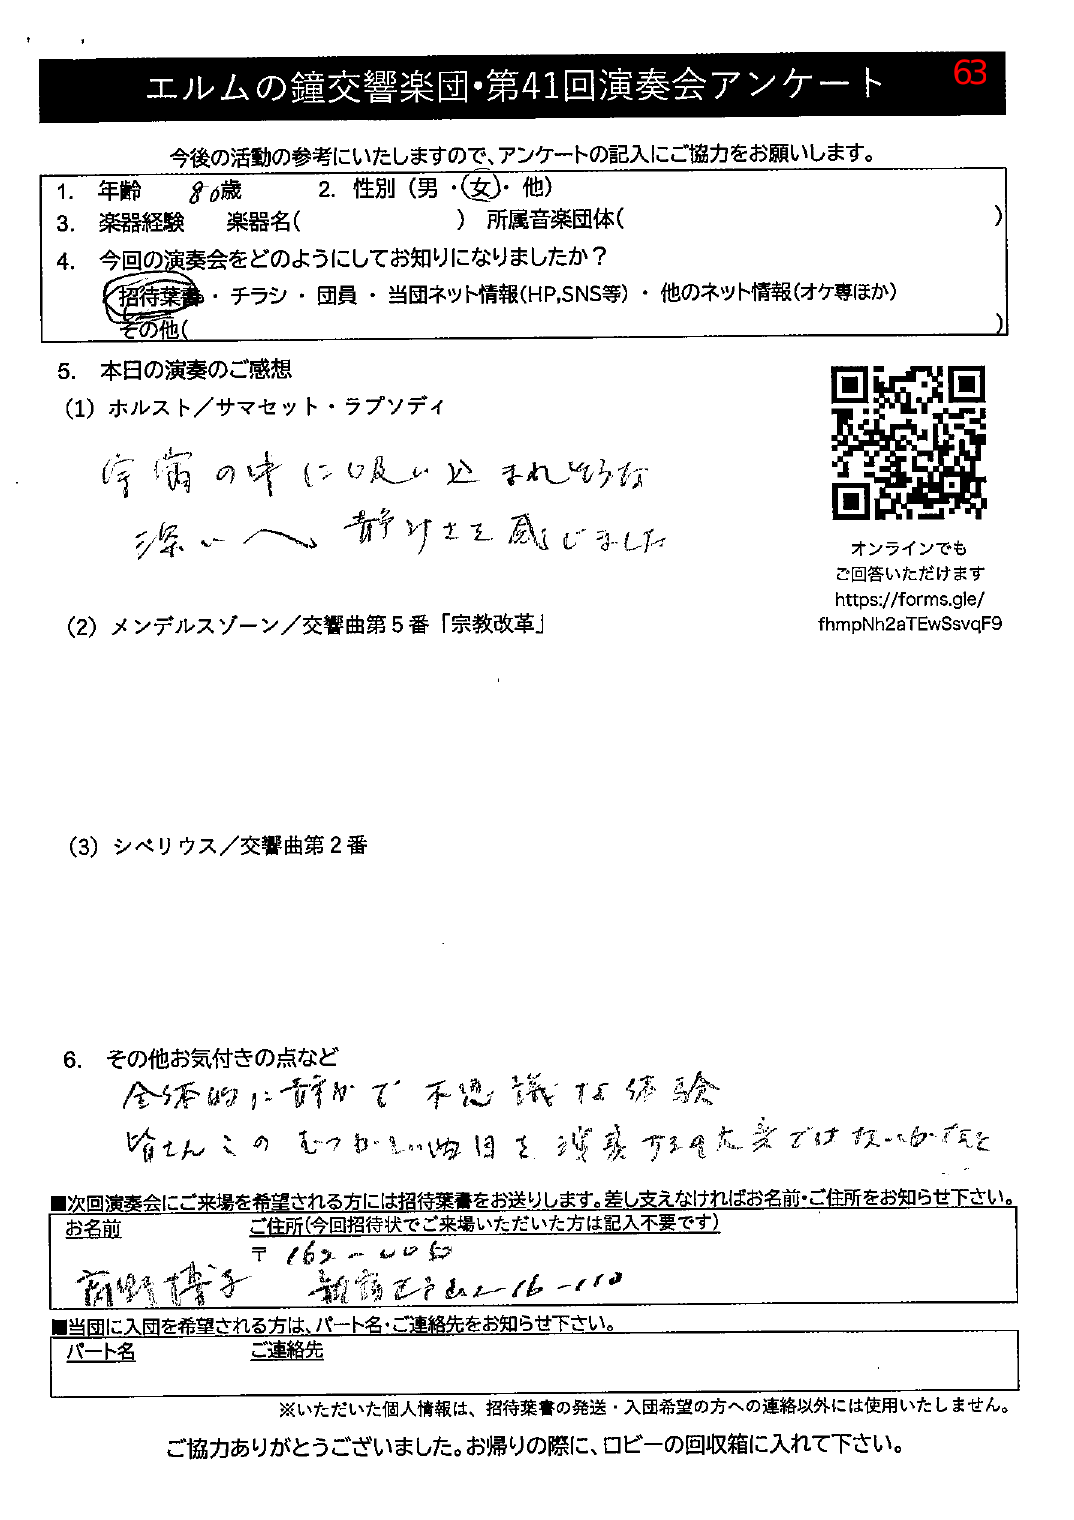 エルムの鐘交響楽団・第41回演奏会アンケート 63
今後の活動の参考にいたしますので、アンケートの記入にご協力をお願いします。
1. 年齢 80歳 2. 性別 (男・女・他)
3. 楽器経験 楽器名( ) 所属音楽団体( )
4. 今回の演奏会をどのようにしてお知りになりましたか？
招待葉書・チラシ・団員・当団ネット情報(HP,SNS等)・他のネット情報(オケ専ほか)
その他( )
5. 本日の演奏のご感想
(1) ホルスト／サマセット・ラプソディ
宇宙の中に吸い込まれそうな
深い 静けさを感じました
オンラインでも
ご回答いただけます
https://forms.gle/
fhmpNh2aTEwSsvqF9
(2) メンデルスゾーン／交響曲第５番「宗教改革」
(3) シベリウス／交響曲第２番
6. その他お気付きの点など
全体的に静かで不思議な体験
皆さんこのむつかしい曲目を演奏するの大変ではないかなと
■次回演奏会にご来場を希望される方には招待葉書をお送りします。差し支えなければお名前・ご住所をお知らせ下さい。
お名前 ご住所(今回招待状でご来場いただいた方は記入不要です)
〒 162-0052
野博子 新宿区戸山2-16-110
■当団に入団を希望される方は、パート名・ご連絡先をお知らせ下さい。
パート名 ご連絡先
※いただいた個人情報は、招待葉書の発送・入団希望の方への連絡以外には使用いたしません。
ご協力ありがとうございました。お帰りの際に、ロビーの回収箱に入れて下さい。